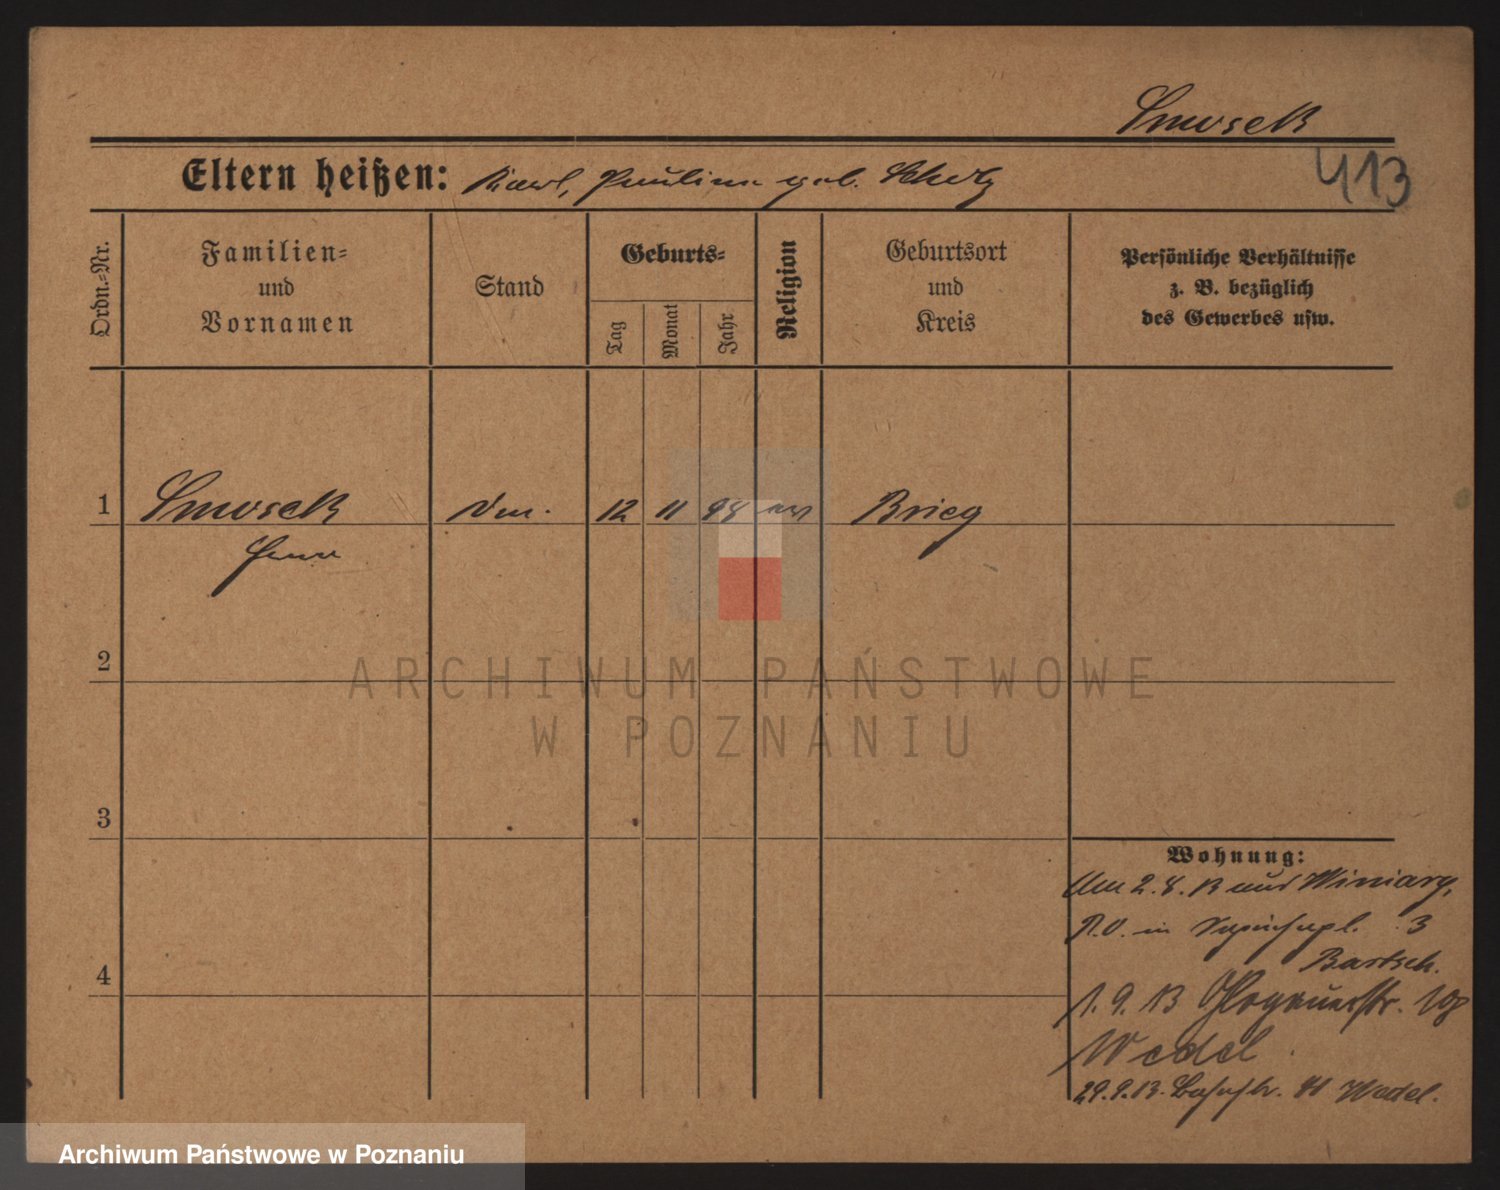 Smoseck
413
Eltern heißen: Karl, Pauline geb. Scholz
Ordn.-Nr.
Familien-
und
Vornamen
Stand
Geburts-
Tag
Monat
Jahr
Religion
Geburtsort
und
Kreis
Persönliche Verhältnisse
z. B. bezüglich
des Gewerbes usw.
1 Smoseck 12 11 94 Brieg
2
3
4
Wohnung:
Am 2. 8. 13 aus Winiary,
3
Bartsch.
1. 9. 13 Glogauerstr. 108
Wedel
29. 9. 13. Wedel.
ARCHIWUM PAŃSTWOWE
W POZNANIU
Archiwum Państwowe w Poznaniu